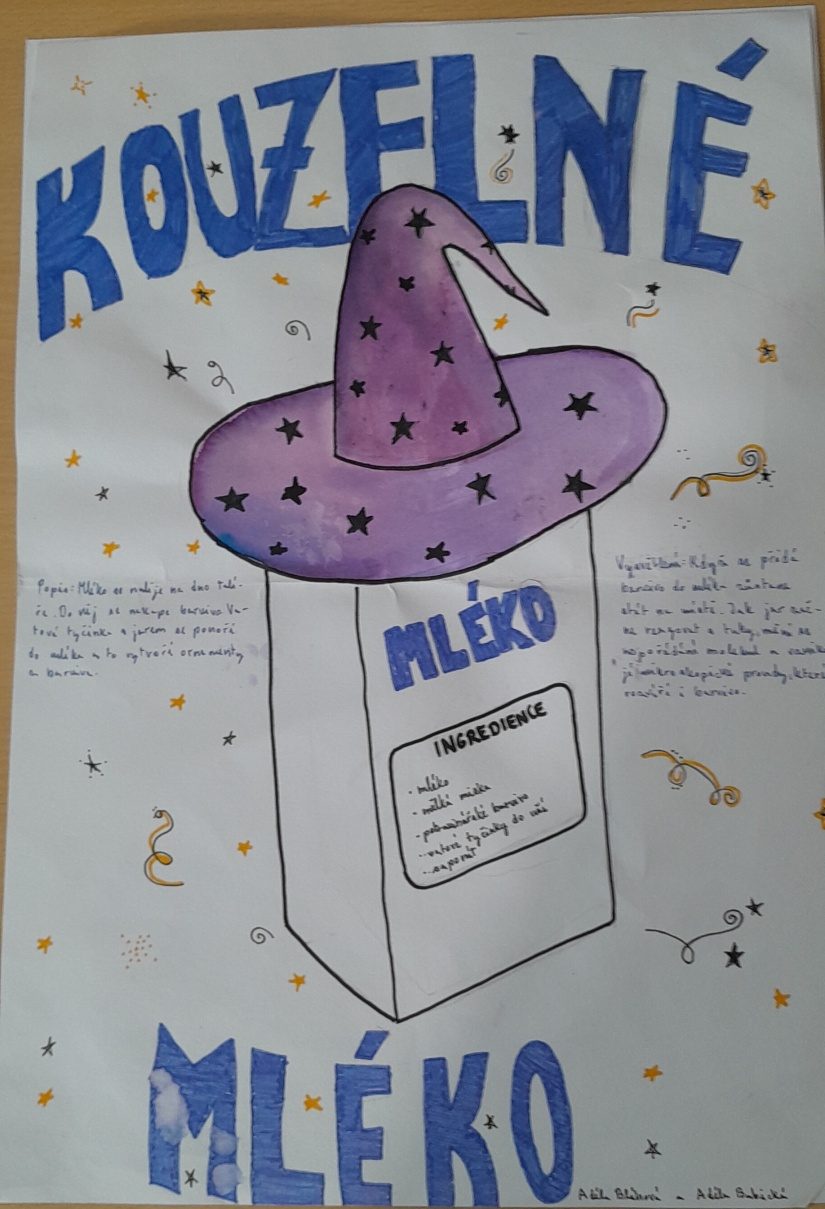 KOUZELNÉ
Popis: Mléko se naleje na dno talí-
ře. Do něj se nakape barvivo. Va-
tové tyčinka s jarem se ponoří
do mléka a to vytvoří ornamenty
a barviva.
Vysvětlení: Když se přidá
barvivo do mléka zůstane
stát na místě. Jak jar zač-
ne reagovat s tuky, mění se
molekul a
mikroskopické proudy, které
i barvivo.
MLÉKO
INGREDIENCE
- mléko
- mělká miska
- potravinářské barvivo
- vatové tyčinky do uší
- saponát
MLÉKO
Adéla a Adéla